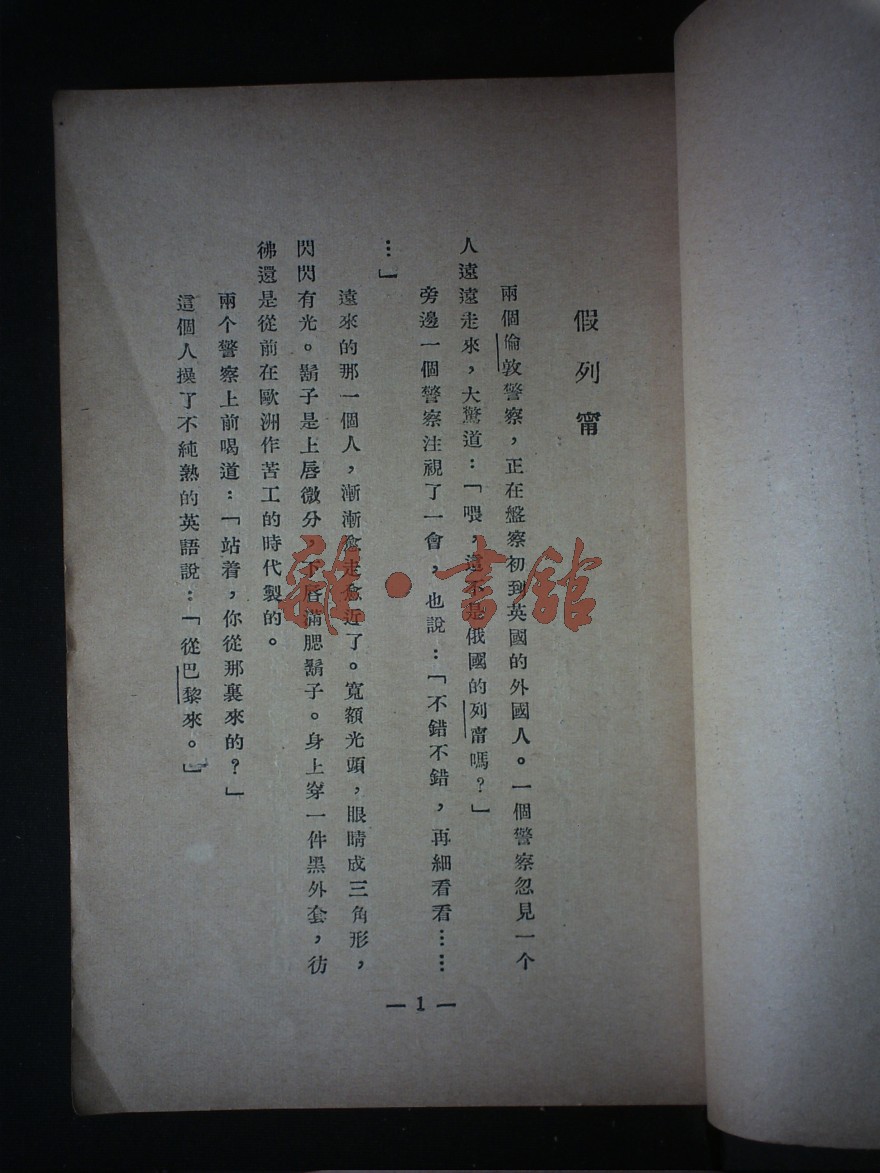 假列甯
兩個倫敦警察，正在盤察初到英國的外國人。一個警察忽見一个
人遠遠走來，大驚道：「喂，這不是俄國的列甯嗎？」
旁邊一個警察注視了一會，也說：「不錯不錯，再細看看……
…」
遠來的那一個人，漸漸愈走愈近了。寬額光頭，眼睛成三角形，
閃閃有光。鬍子是上唇微分，下唇滿腮鬍子。身上穿一件黑外套，彷
彿還是從前在歐洲作苦工的時代製的。
兩个警察上前喝道：「站着，你從那裏來的？」
這個人操了不純熟的英語說：「從巴黎來。」
— 1 —
雜·書館